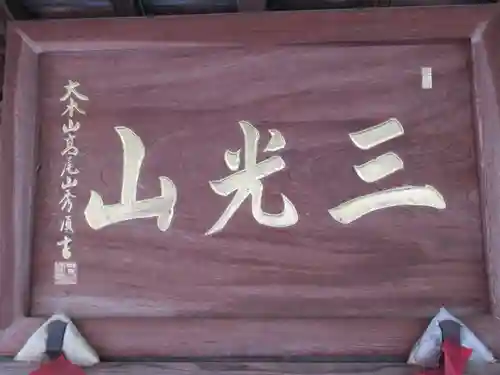 三光山
大本山髙尾山秀順書